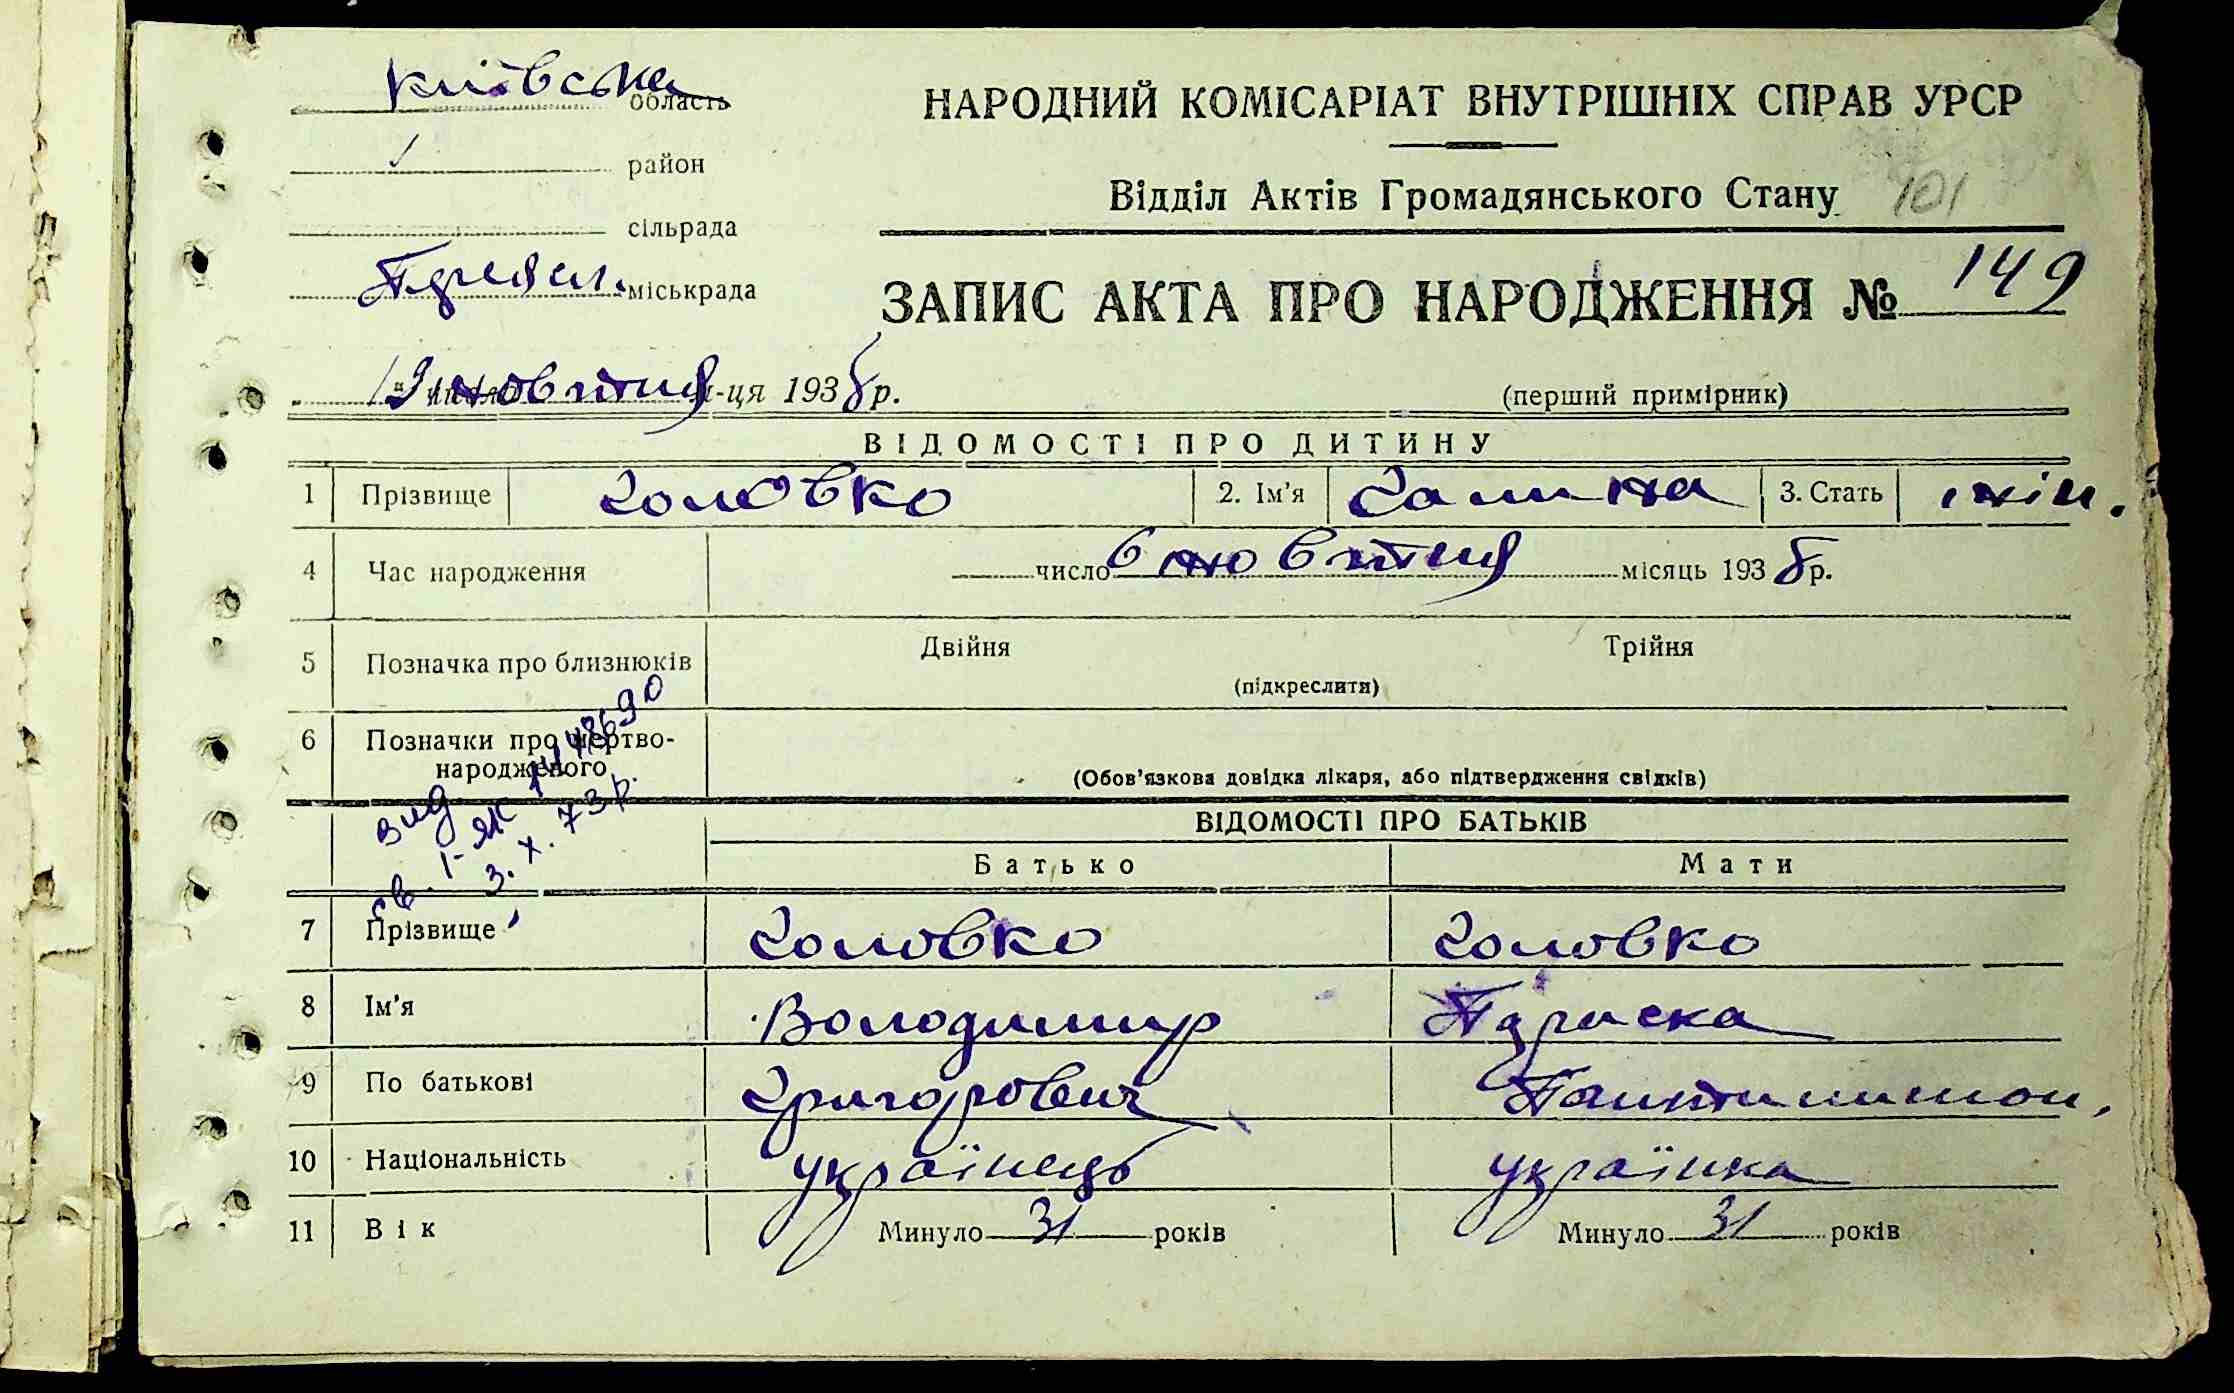 Київська область
район
сільрада
міськрада
НАРОДНИЙ КОМІСАРІАТ ВНУТРІШНІХ СПРАВ УРСР
Відділ Актів Громадянського Стану 101
ЗАПИС АКТА ПРО НАРОДЖЕННЯ № 149
13 жовтня м-ця 1938 р.
(перший примірник)
ВІДОМОСТІ ПРО ДИТИНУ
1 Прізвище Головко 2. Ім'я Галина 3. Стать жін.
4 Час народження число 6 жовтня місяць 1938 р.
5 Позначка про близнюків Двійня Трійня
(підкреслити)
6 Позначки про мертво-
народженого
(Обов'язкова довідка лікаря, або підтвердження свідків)
вид
св. І-ЯК № 448690
3. X. 73 р.
ВІДОМОСТІ ПРО БАТЬКІВ
Батько Мати
7 Прізвище Головко Головко
8 Ім'я Володимир Параска
9 По батькові Григорович Пантилимон.
10 Національність українець українка
11 Вік Минуло 31 років Минуло 31 років